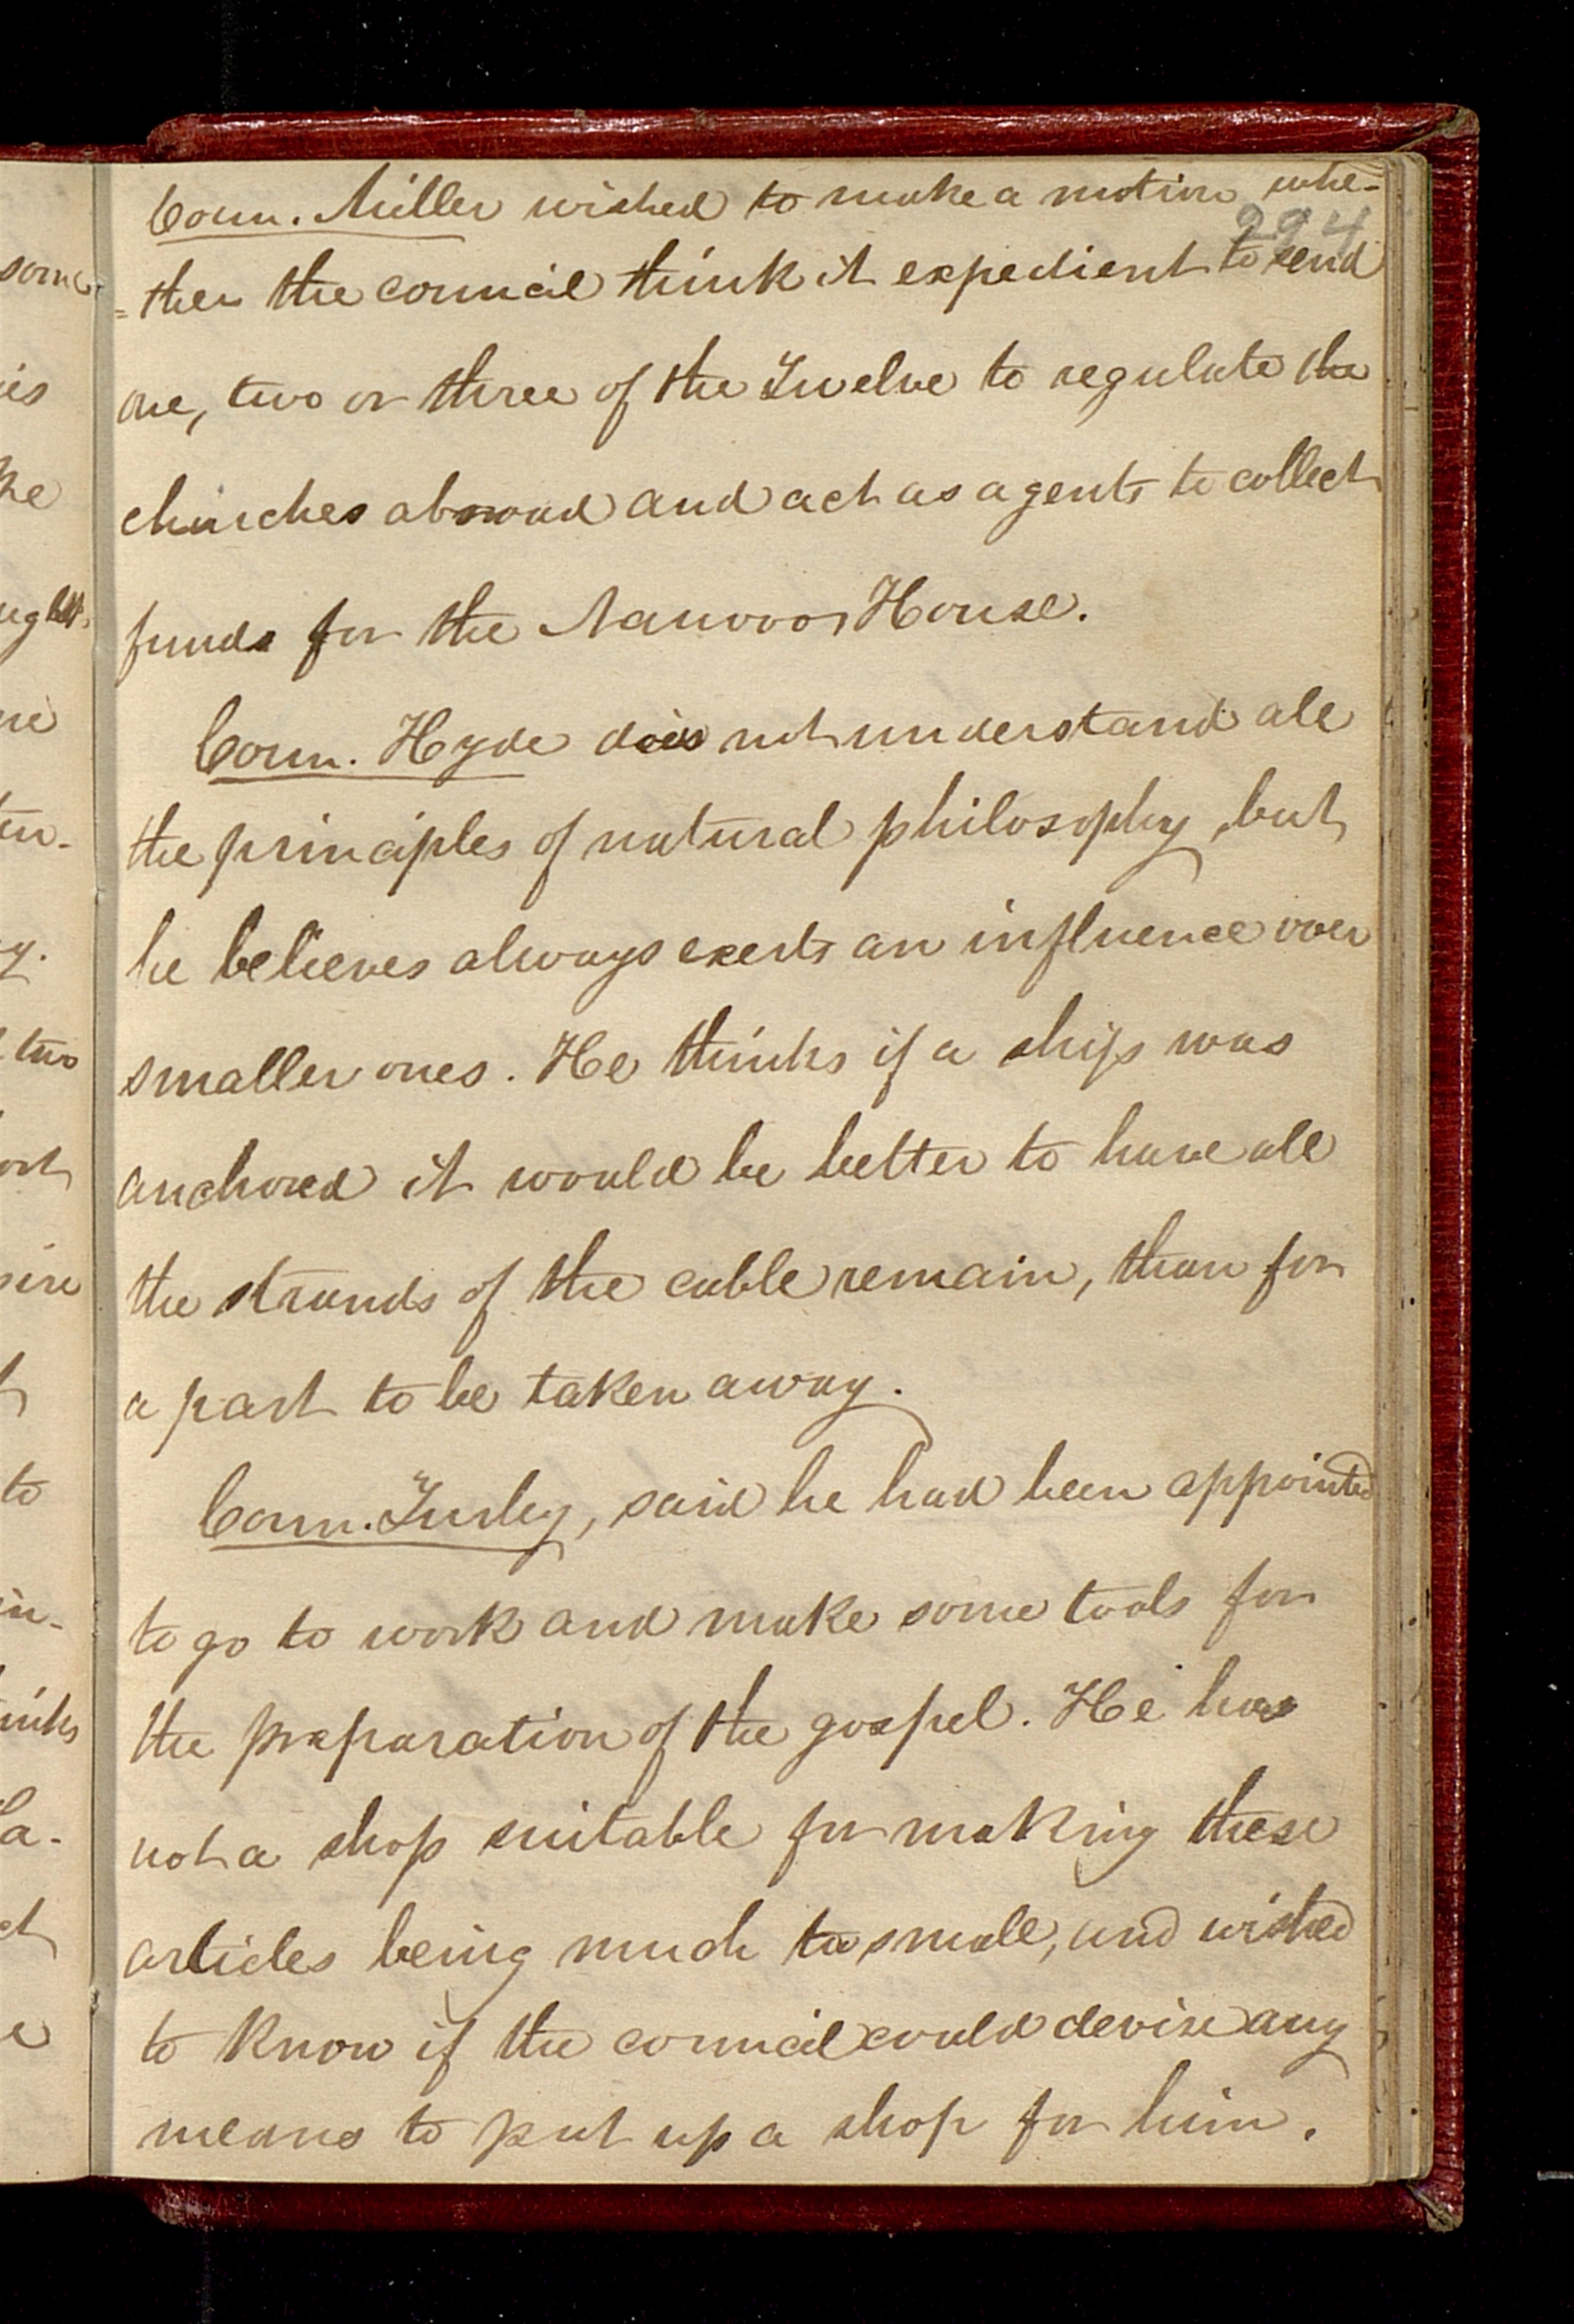 some
is
he
ne
in-
y.
two
to
in-
a-
e
Coun. Miller wished to make a motion whe-
294
=ther the council think it expedient to send
one, two or three of the Twelve to regulate the
churches abroad and act as agents to collect
funds for the Nauvoo House.
Coun. Hyde does not understand all
the principles of natural philosophy, but
he believes always exerts an influence over
smaller ones. He thinks if a ship was
anchored it would be better to have all
the strands of the cable remain, than for
a part to be taken away.
Coun. Turley, said he had been appointed
to go to work and make some tools for
the preparation of the gospel. He has
not a shop suitable for making these
articles being much too small, and wished
to know if the council could devise any
means to put up a shop for him.